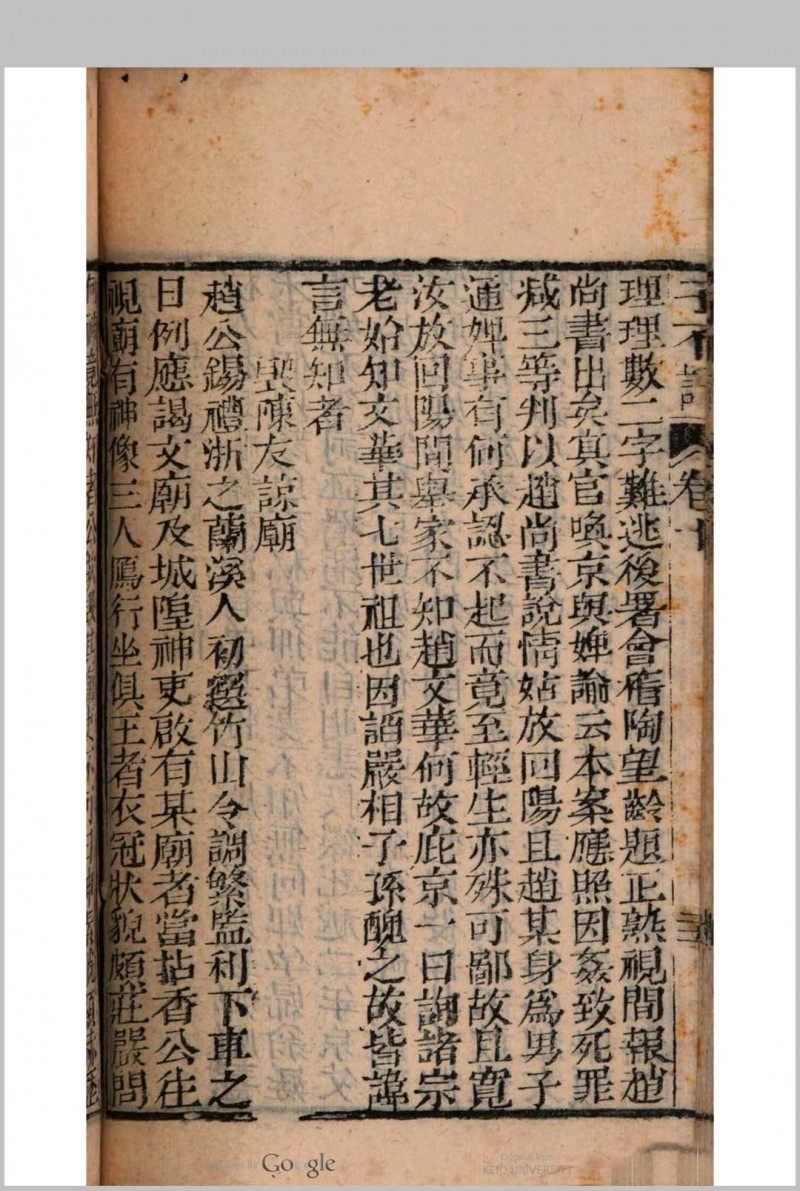 子不語 卷十
理理數二字難逃後署會稽陶望齡題正熟視間報趙
尚書出矣冥官喚京與婢諭云本案應照因姦致死罪
減三等判以趙尚書說情姑放回陽且趙某身爲男子
通婢事有何承認不起而竟至輕生亦殊可鄙故且寬
汝放回陽間舉家不知趙文華何故庇京一日詢諸宗
老始知文華其七世祖也因諂嚴相子孫醜之故皆諱
言無知者
毀陳友諒廟
趙公錫禮浙之蘭溪人初選竹山令調繁監利下車之
日例應謁文廟及城隍神吏啟有某廟者當拈香公往
視廟有神像三人鴈行坐俱王者衣冠狀貌頗莊嚴問
Google
Original from